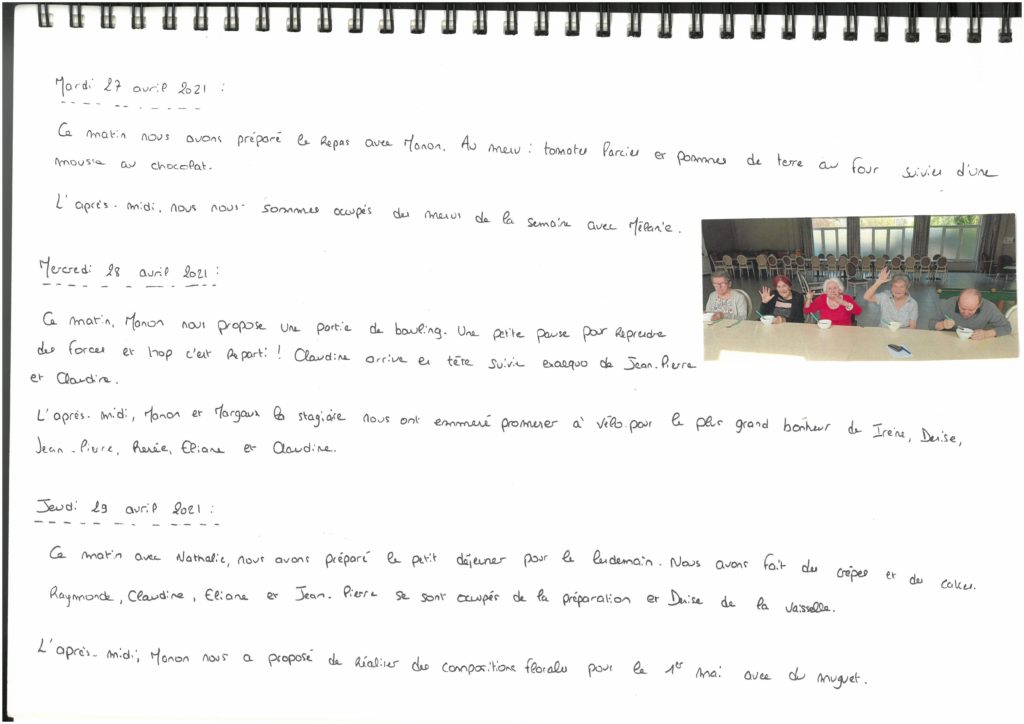 Mardi 27 avril 2021 :
Ce matin nous avons préparé le repas avec Manon. Au menu : tomates farcies et pommes de terre au four suivies d'une
mousse au chocolat.
L'après-midi, nous nous sommes occupés des menus de la semaine avec Mélanie.
Mercredi 28 avril 2021 :
Ce matin, Manon nous propose une partie de bowling. Une petite pause pour reprendre
des forces et hop c'est reparti ! Claudine arrive en tête suivie exaequo de Jean-Pierre
et Claudine.
L'après-midi, Manon et Margaux la stagiaire nous ont emmené promener à vélo pour le plus grand bonheur de Irène, Denise,
Jean-Pierre, Renée, Eliane et Claudine.
Jeudi 29 avril 2021 :
Ce matin avec Nathalie, nous avons préparé le petit déjeuner pour le lendemain. Nous avons fait des crêpes et des cakes.
Raymonde, Claudine, Eliane et Jean-Pierre se sont occupés de la préparation et Denise de la vaisselle.
L'après-midi, Manon nous a proposé de réaliser des compositions florales pour le 1er mai avec du muguet.